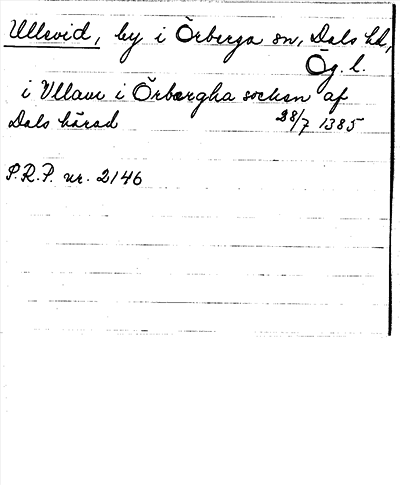 Ullevid, by i Örberga sn, Dals hd,
Ög. l.
i Vllawi i Örbergha sochen af
Dals härad 28/7 1385
S.R.P. nr. 2146